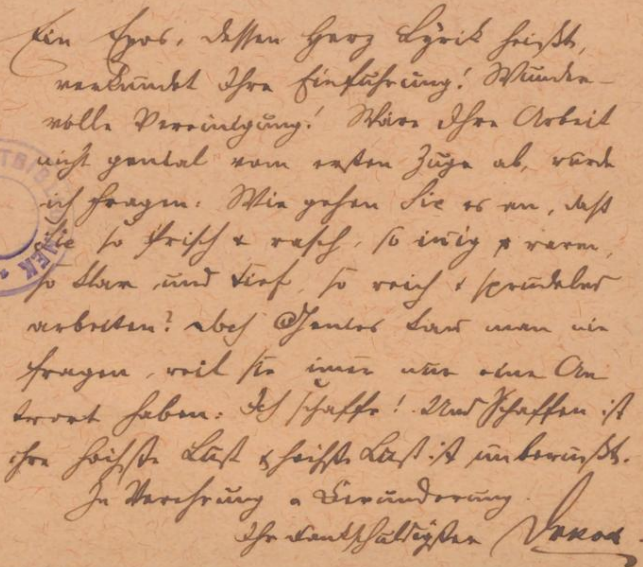 Ein Epos, dessen Herz Lyrik heißt,
verkündet Ihre Einführung! Wunder-
volle Vereinigung! Wäre Ihre Arbeit
nicht genial vom ersten Zuge ab, würde
ich fragen: Wie gehen Sie es an, daß
Sie so frisch & rasch, so innig & warm,
so klar und tief, so reich & sprudelnd
arbeiten? Doch Genies kann man nie
fragen, weil sie immer nur eine An
twort haben: Ich schaffe! Und Schaffen ist
ihre höchste Lust & höchste Lust ist unbewußt.
In Verehrung & Bewunderung
Ihr dankschuldigster